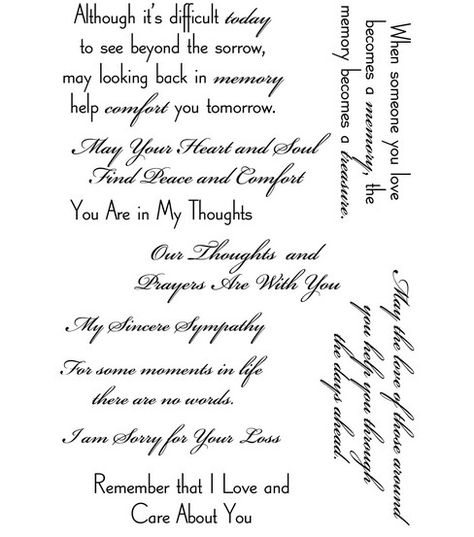 Although it's difficult today
to see beyond the sorrow,
may looking back in memory
help comfort you tomorrow.
May Your Heart and Soul
Find Peace and Comfort
You Are in My Thoughts
Our Thoughts and
Prayers Are With You
My Sincere Sympathy
For some moments in life
there are no words.
I am Sorry for Your Loss
Remember that I Love and
Care About You
When someone you love
becomes a memory, the
memory becomes a treasure.
May the love of those around
you help you through
the days ahead.